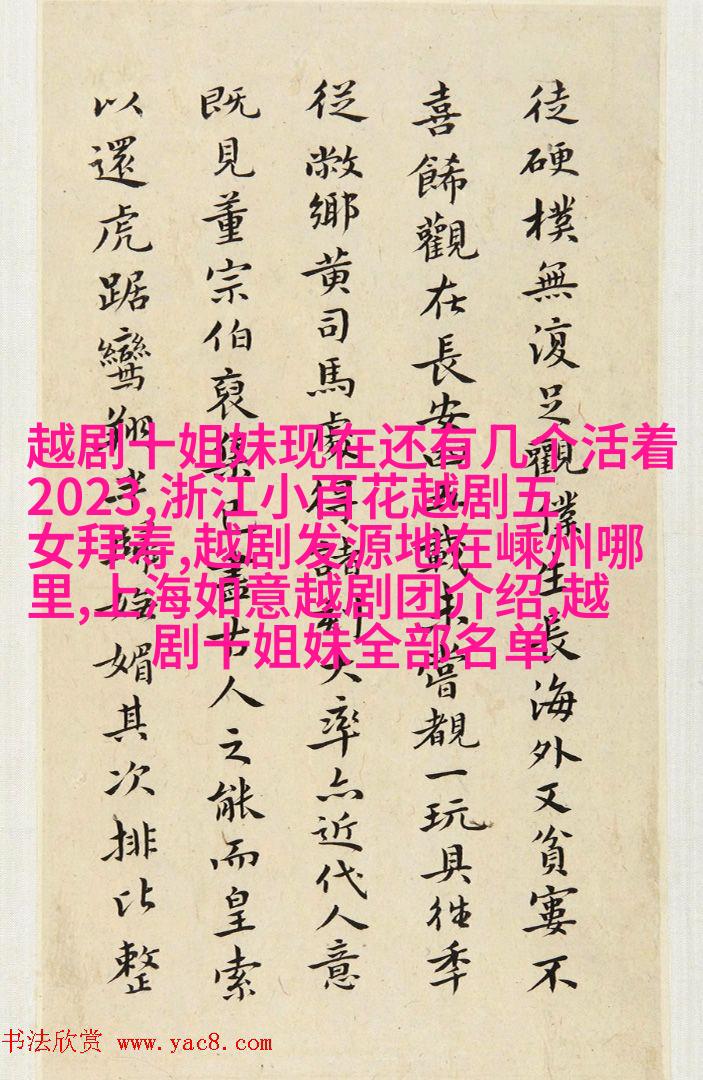 徒硬樸無復足觀僕生長海外又貧窶不
喜餙觀在長安戲未嘗覩一玩具往年
從敝鄉黃司馬處得諸刻大率亦近代人意
既見董宗伯裒集古人之能而皇索
以還虎踞鸞翔媚其次排比整
越剧十姐妹现在还有几个活着
2023,浙江小百花越剧五
女拜寿,越剧发源地在嵊州哪
里,上海如意越剧团介绍,越
剧十姐妹全部名单
书法欣赏 www.yac8.com